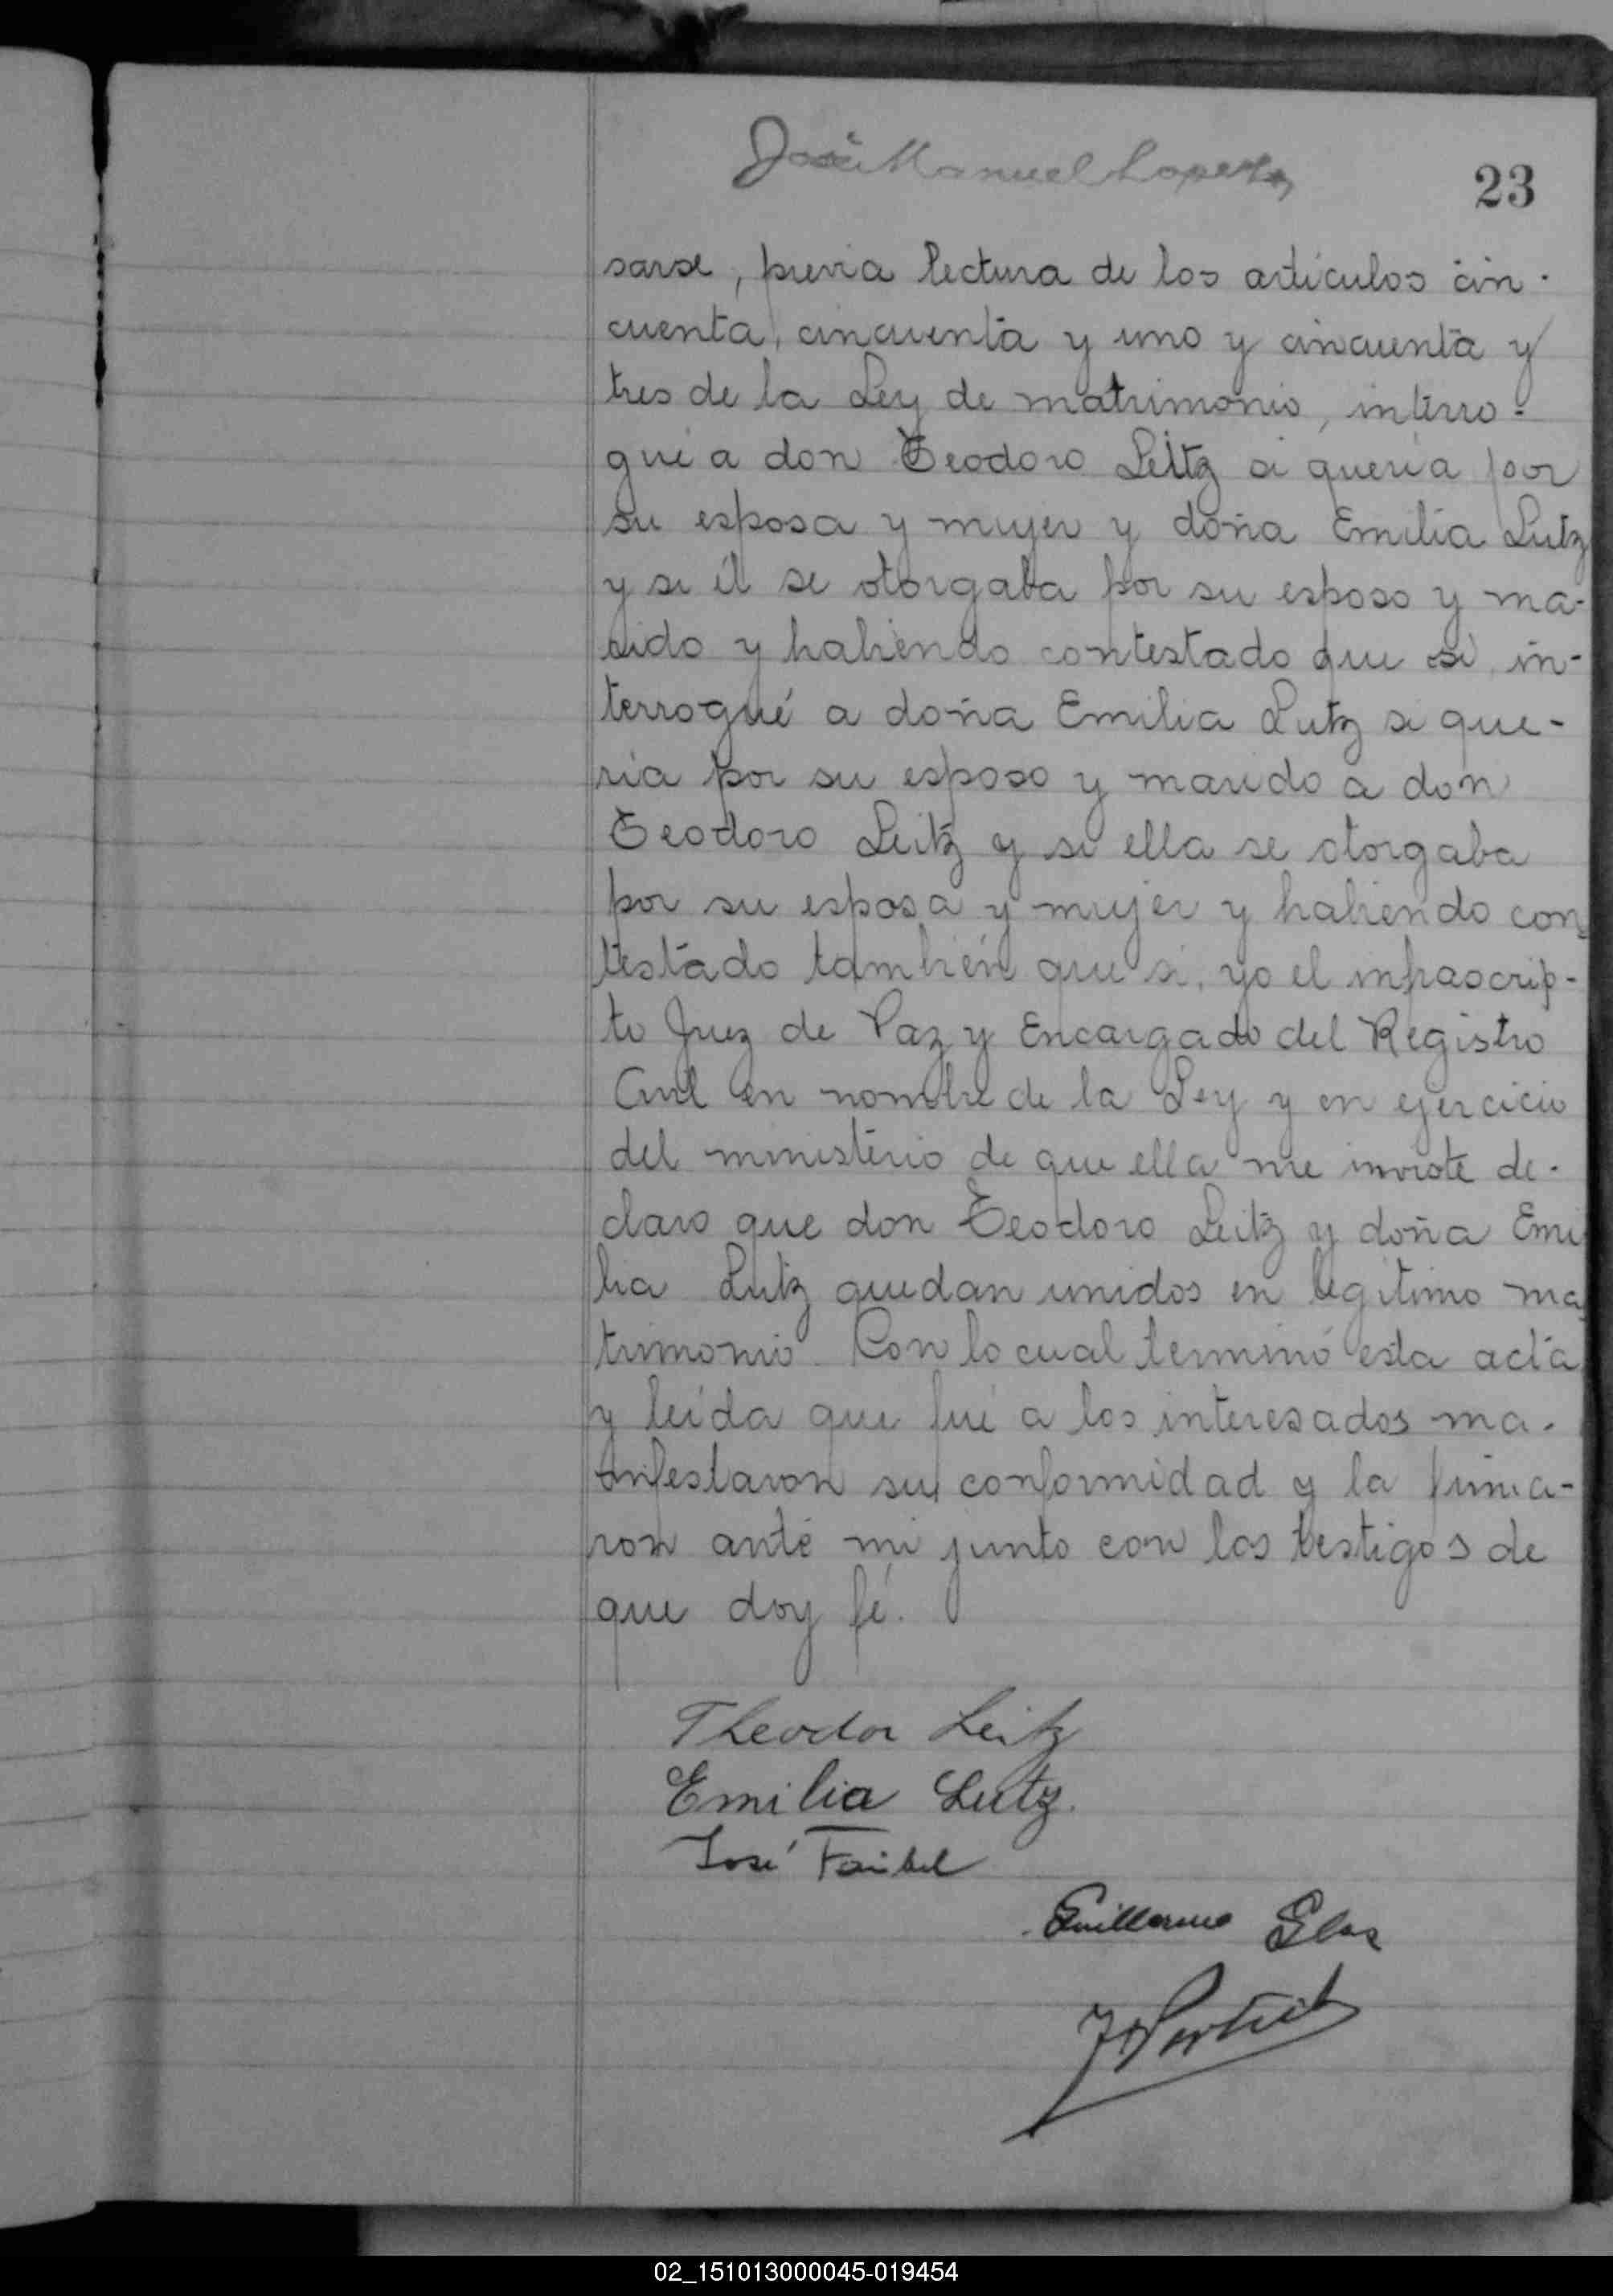 José Manuel Lopez
23
sarse, previa lectura de los artículos cin-
cuenta, cincuenta y uno y cincuenta y
tres de la Ley de matrimonio, interro-
gué a don Teodoro Leitz si quería por
su esposa y mujer y doña Emilia Lutz
y si él se otorgaba por su esposo y ma-
rido y habiendo contestado que si, in-
terrogué a doña Emilia Lutz si que-
ría por su esposo y marido a don
Teodoro Leitz y si ella se otorgaba
por su esposa y mujer y habiendo con-
testado también que si, yo el infrascrip-
to Juez de Paz y Encargado del Registro
Civil en nombre de la Ley y en ejercicio
del ministerio de que ella me inviste de-
claro que don Teodoro Leitz y doña Emi
lia Lutz quedan unidos en legítimo ma-
trimonio. Con lo cual terminó esta acta
y leída que fué a los interesados ma-
nifestaron su conformidad y la firma-
ron ante mi junto con los testigos de
que doy fé.
Theodor Leitz
Emilia Lutz.
José
Guillermo
02_151013000045-019454